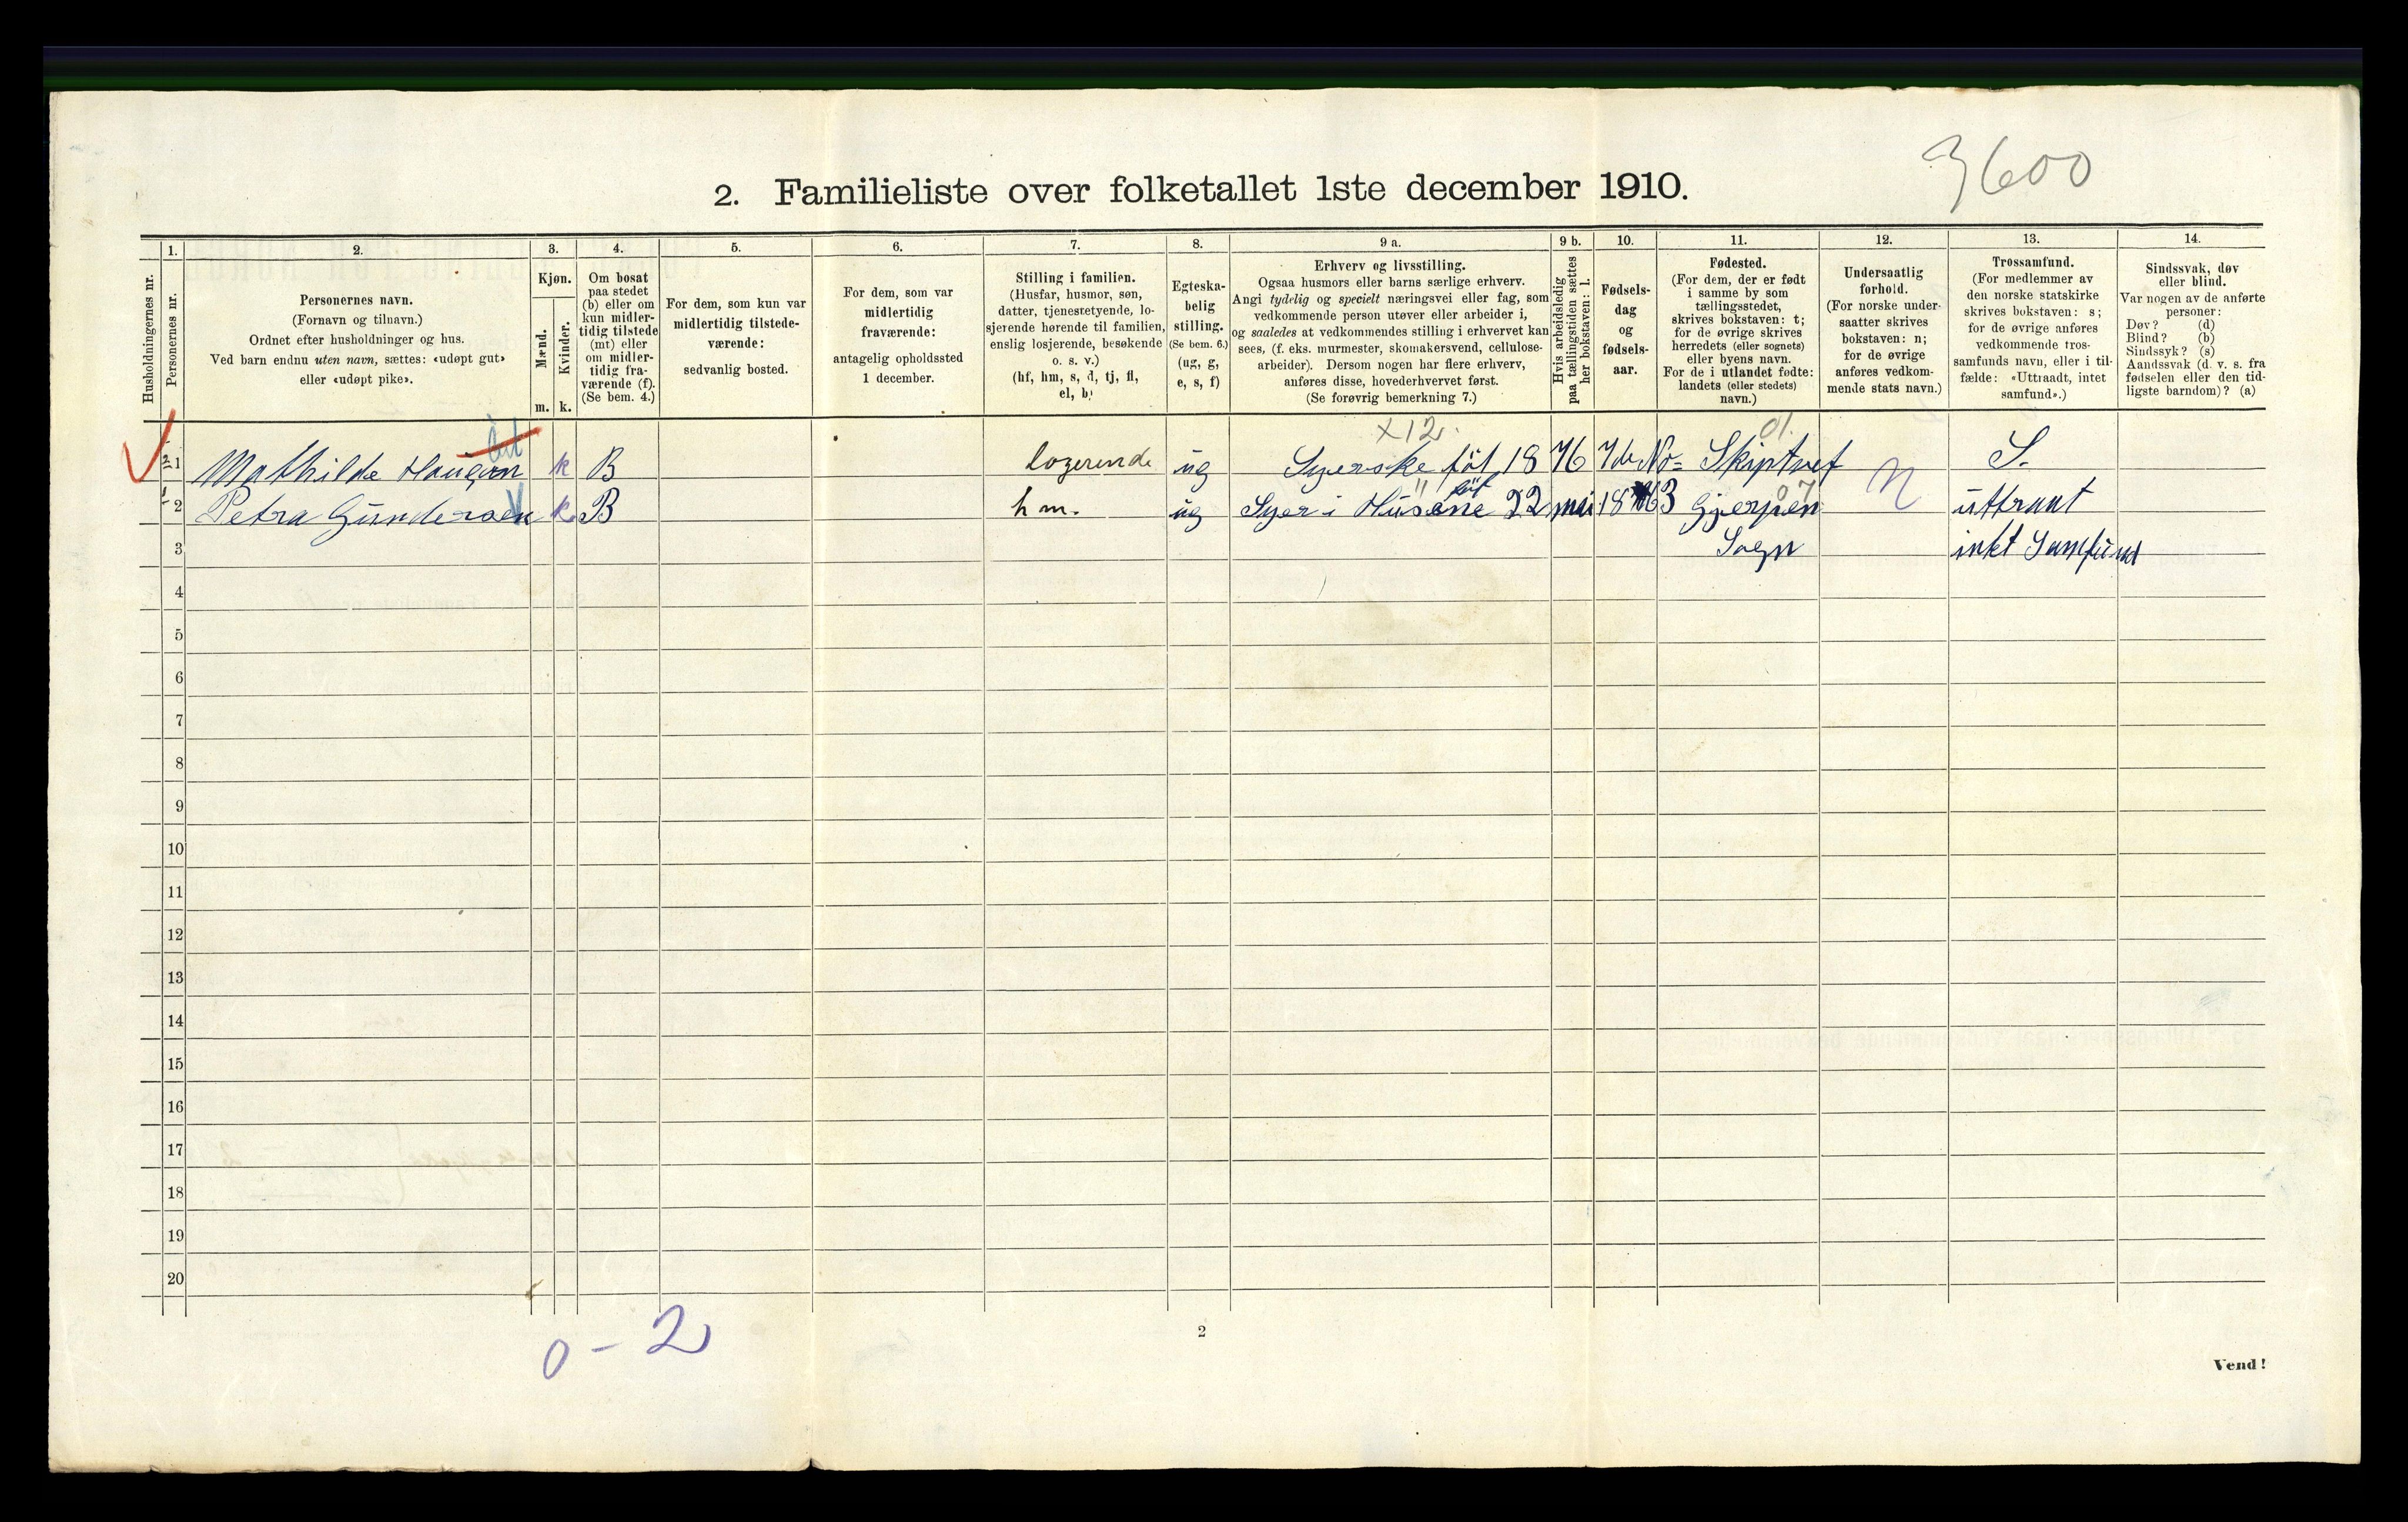 3600
2. Familieliste over folketallet 1ste december 1910.
Husholdningernes nr.
1.
Personernes nr.
2.
Personernes navn.
(Fornavn og tilnavn.)
Ordnet efter husholdninger og hus.
Ved barn endnu uten navn, sættes: «udøpt gut»
eller «udøpt pike».
3.
Kjøn.
Mænd.
Kvinder.
m. k.
4.
Om bosat
paa stedet
(b) eller om
kun midler-
tidig tilstede
(mt) eller
om midler-
tidig fra-
værende (f).
(Se bem. 4.)
5.
For dem, som kun var
midlertidig tilstede-
værende:
sedvanlig bosted.
6.
For dem, som var
midlertidig
fraværende:
antagelig opholdssted
1 december.
7.
Stilling i familien.
(Husfar, husmor, søn,
datter, tjenestetyende, lo-
sjerende hørende til familien,
enslig losjerende, besøkende
o. s. v.)
(hf, hm, s, d, tj, fl,
el, b)
8.
Egteska-
belig
stilling.
(Se bem. 6.)
(ug, g,
e, s, f)
9 a.
Erhverv og livsstilling.
Ogsaa husmors eller barns særlige erhverv.
Angi tydelig og specielt næringsvei eller fag, som
vedkommende person utøver eller arbeider i,
og saaledes at vedkommendes stilling i erhvervet kan
sees, (f. eks. murmester, skomakersvend, cellulose-
arbeider). Dersom nogen har flere erhverv,
anføres disse, hovederhvervet først.
(Se forøvrig bemerkning 7.)
9 b.
Hvis arbeidsledig
paa tællingstiden sættes
her bokstaven: l.
10.
Fødsels-
dag
og
fødsels-
aar.
11.
Fødested.
(For dem, der er født
i samme by som
tællingsstedet,
skrives bokstaven: t;
for de øvrige skrives
herredets (eller sognets)
eller byens navn.
For de i utlandet fødte:
landets (eller stedets)
navn.)
12.
Undersaatlig
forhold.
(For norske under-
saatter skrives
bokstaven: n;
for de øvrige
anføres vedkom-
mende stats navn.)
13.
Trossamfund.
(For medlemmer av
den norske statskirke
skrives bokstaven: s;
for de øvrige anføres
vedkommende tros-
samfunds navn, eller i til-
fælde: «Uttraadt, intet
samfund».)
14.
Sindssvak, døv
eller blind.
Var nogen av de anførte
personer:
Døv? (d)
Blind? (b)
Sindssyk? (s)
Aandssvak (d. v. s. fra
fødselen eller den tid-
ligste barndom)? (a)
x12. 01.
2 1 Mathilde Haugen k B logerende ug Syerske föt 1876 7de No= Skiptvet S.
1 2 Petra Gundersen k B hm. ug Syer i Husene föt 22 mai 1863 Gjerpen 07 n uttraat
3 Sogn intet Samfund
4
5
6
7
8
9
10
11
12
13
14
15
16
17
18
19
20
0 - 2
2
Vend!